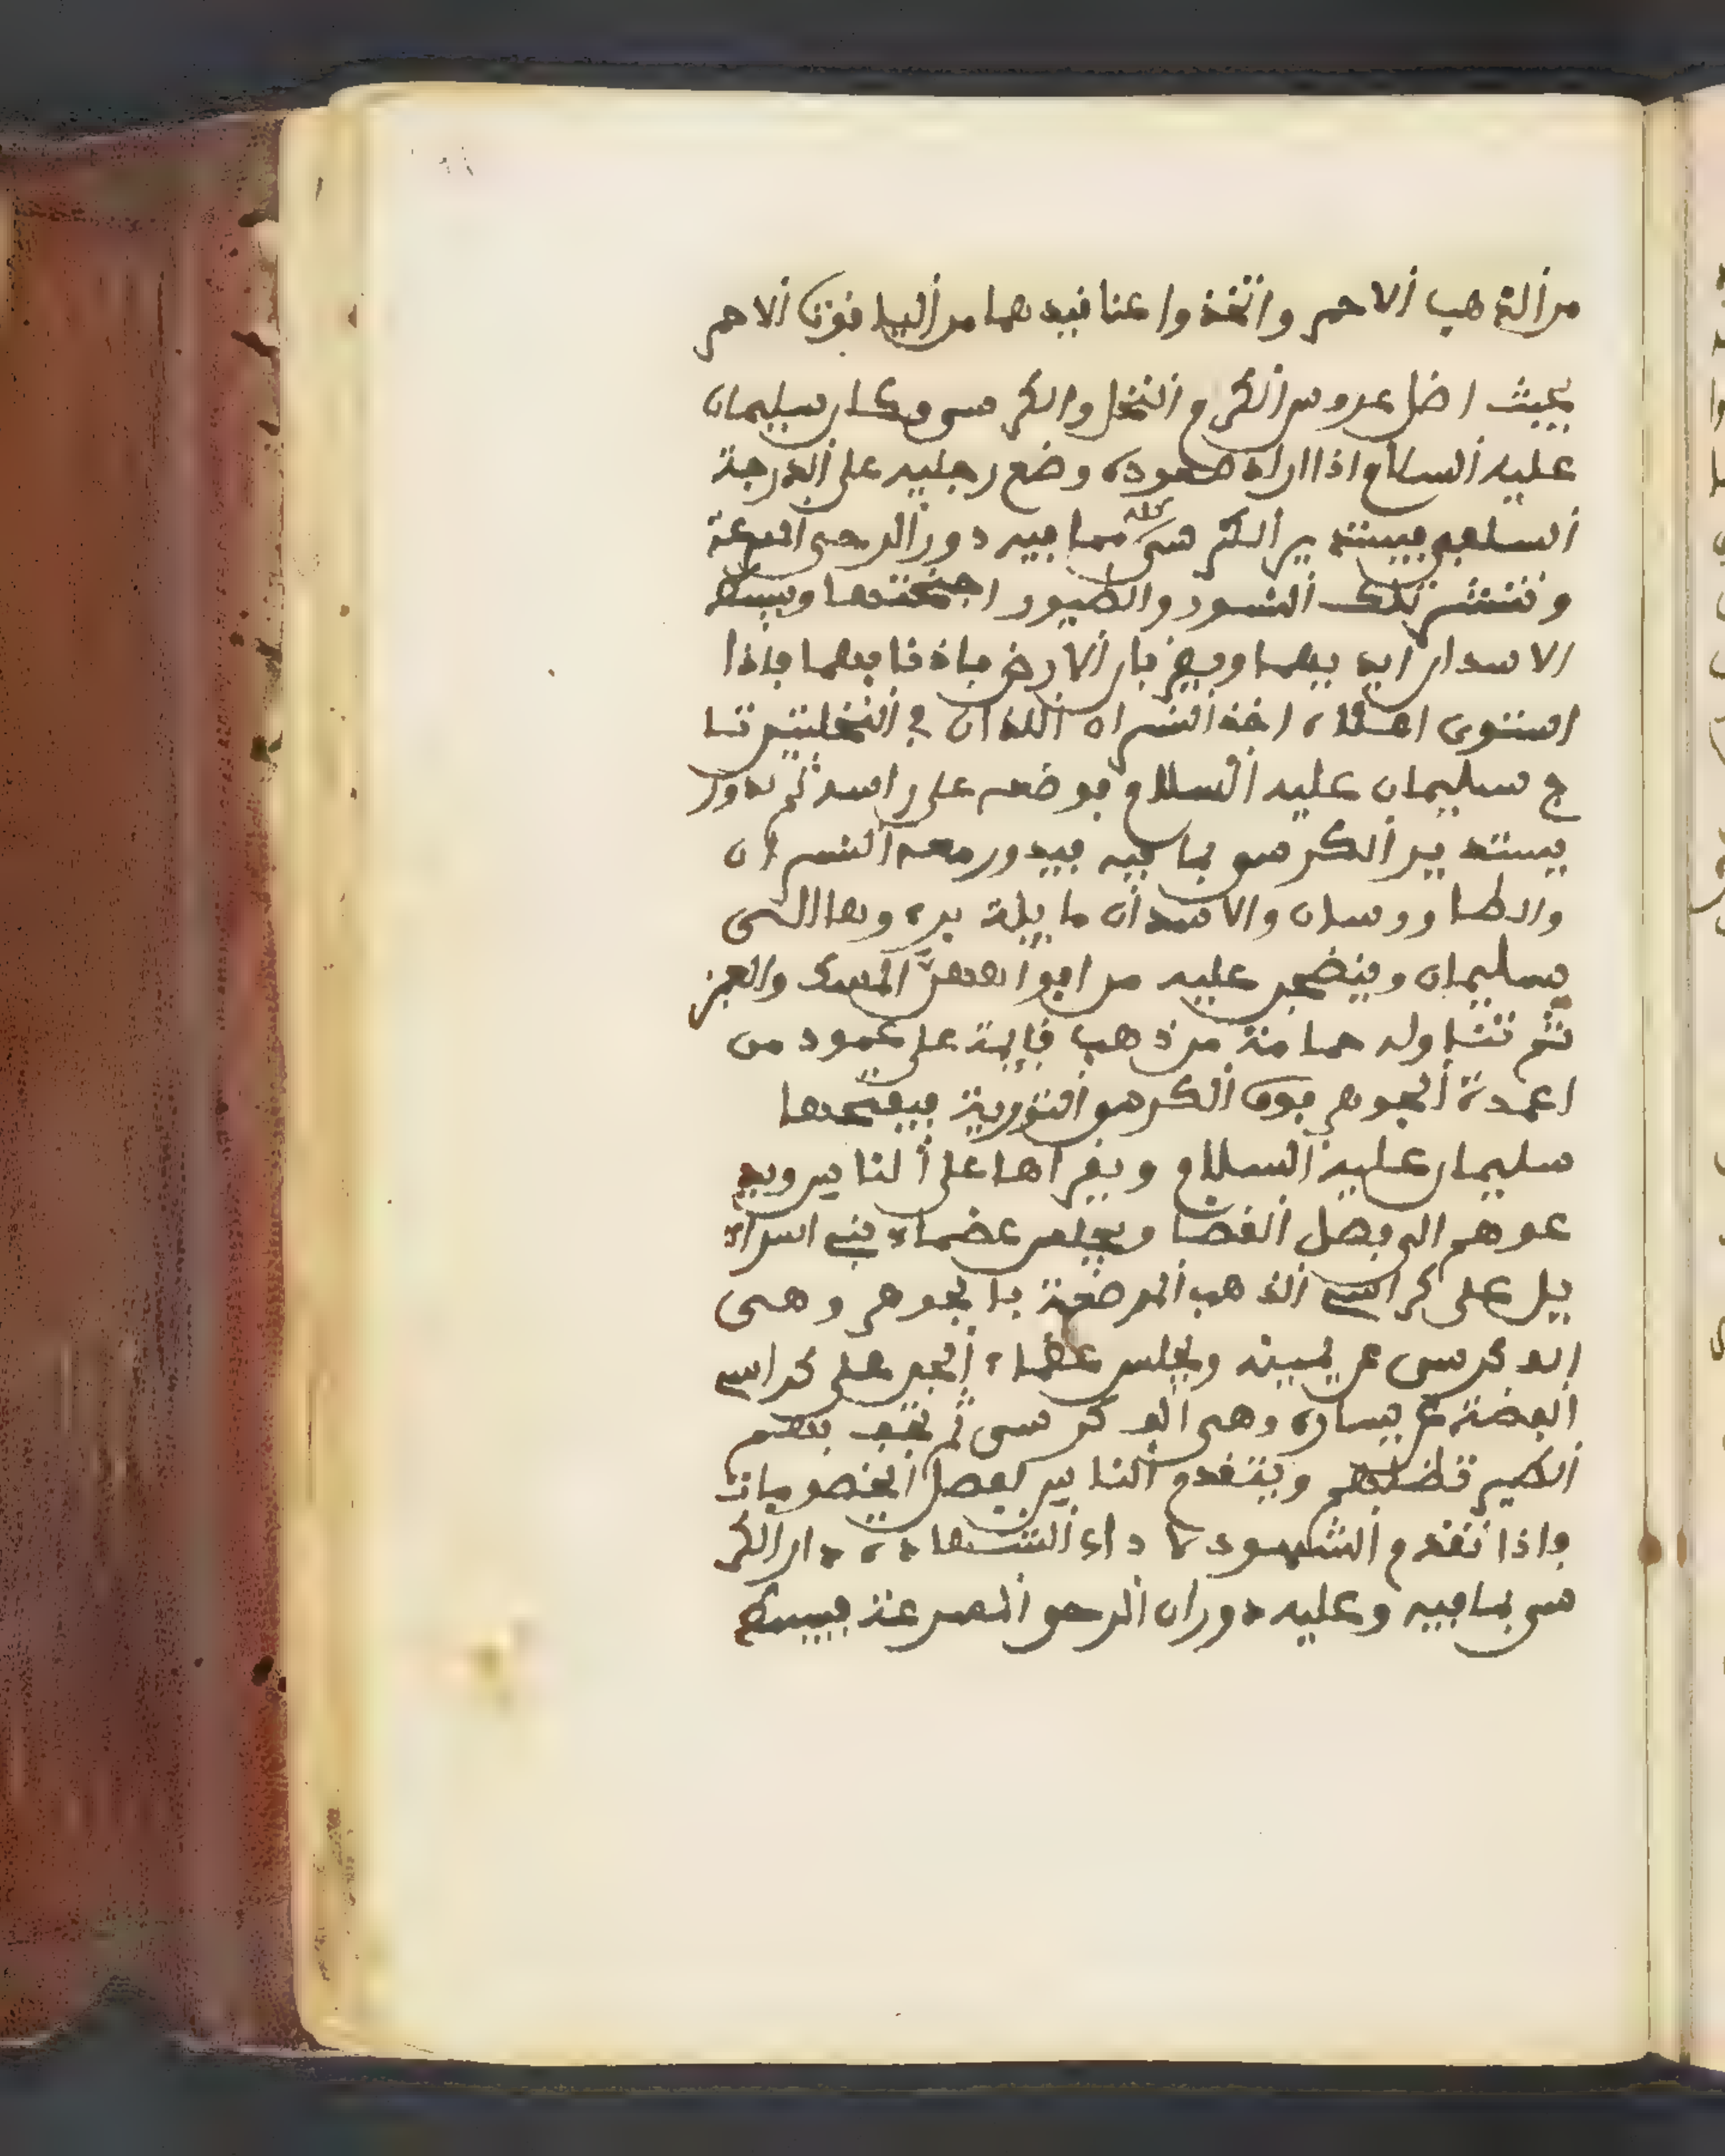 من الذهب الاحمر واتخذوا عنافيدهما من الياقوت الاحمر
بحيث اضل عروس الكرم النخل والكرسى وكان سليمان
عليه السلام اذا اراد صعوده وضع رجليه على الدرجة
السلفى فيستدير الكرسى كله بما فيه دور الرحى المسرعة
وتنتشر تلك النسور والطيور اجنحتها ويبسط
الاسدان ايديهما ويضربان الارض باذنابهما فاذا
استوى اعلاه اخذ النسران اللذان في النخلتين تا
ج سليمان عليه السلام فوضعه على راسه ثم تدور
يستدير الكرسى بما فيه فيدور معه النسران
والطاووسان والاسدان مايلة بره وها الى
سليمان وينضحن عليه من افواههن المسك والعنبر
ثم تناوله حمامة من ذهب قايمة على عمود من
اعمدة الجوهر فوق الكرسى التورية فيفتحها
سليمان عليه السلام ويقراها على الناس ويد
عوهم الى فصل القضا ويجلس عضماء بني اسرا
يل على كراسي الذهب المرصعة بالجوهر وهى
الف كرسى عن يمينه ويجلس عضماء الجن على كراسي
الفضة عن يساره وهى الف كرسى ثم تحف بهم
الطير تضلهم ويتقدم الناس لفصل الخصومات
واذا تقدم الشهود لاداء الشهادة دار الكر
سى بما فيه وعليه دوران الرحى المسرعة فيبسط